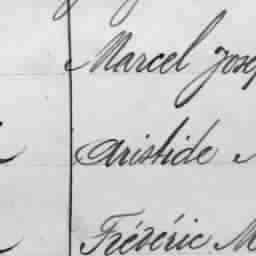 Marcel Jose
Aristide
Frédéric M